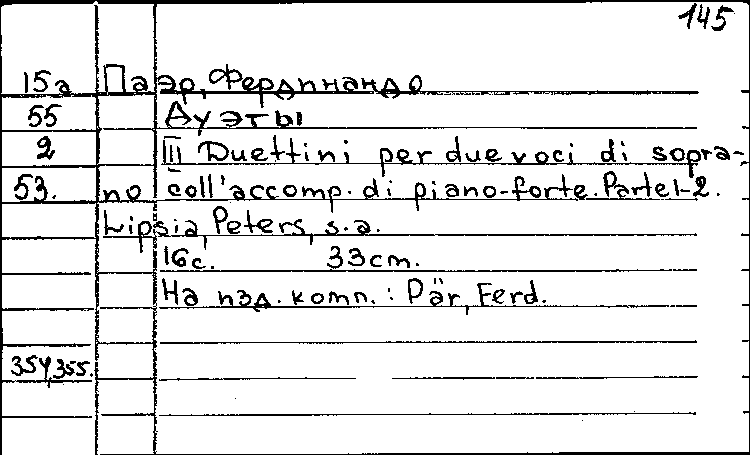 145
15а Паэр, Фердинандо
55 Дуэты
2 III Duettini per due voci di sopra-
53. no coll'accomp. di piano-forte. Parte 1-2.
Lipsia, Peters, s.a.
16с. 33cm.
На изд. комп.: Pär, Ferd.
354,355.